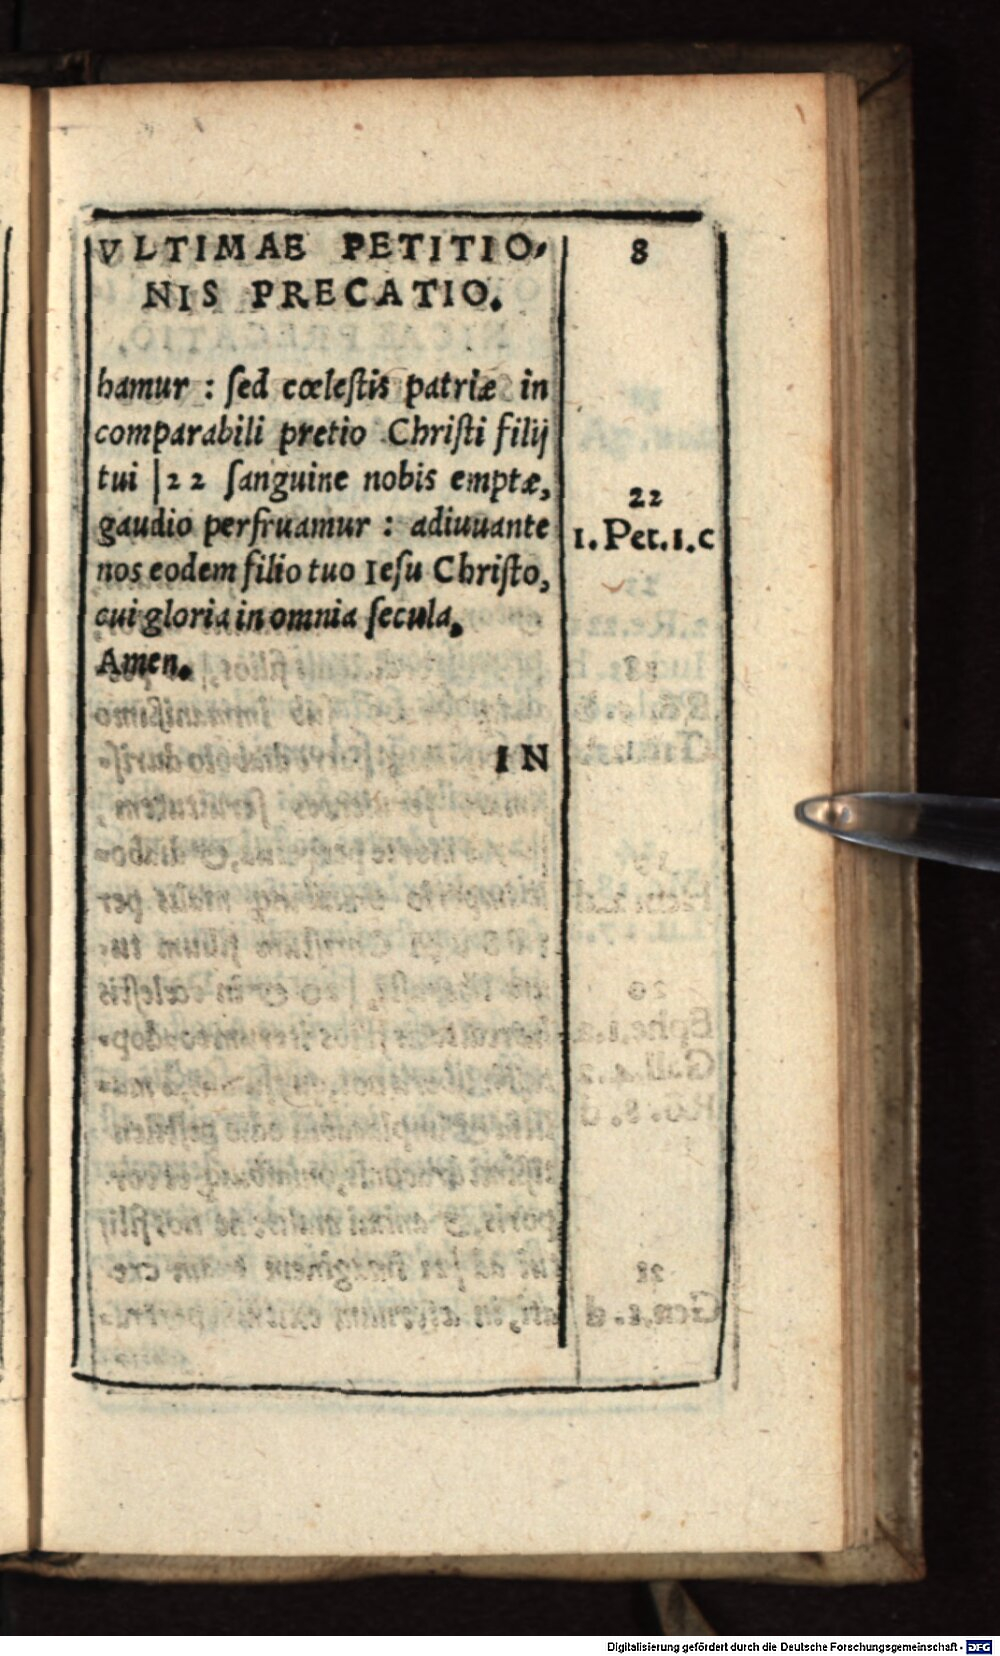 VLTIMAE PETITIO-
NIS PRECATIO.
8
bamur : ſed cœleſtis patriæ in
comparabili pretio Chriſti filij
tui |22 ſanguine nobis emptæ,
gaudio perfruamur : adiuuante
nos eodem filio tuo Ieſu Chriſto,
cui gloria in omnia ſecula.
Amen.
IN
22
1. Pet. 1. c
Digitalisierung gefördert durch die Deutsche Forschungsgemeinschaft - DFG